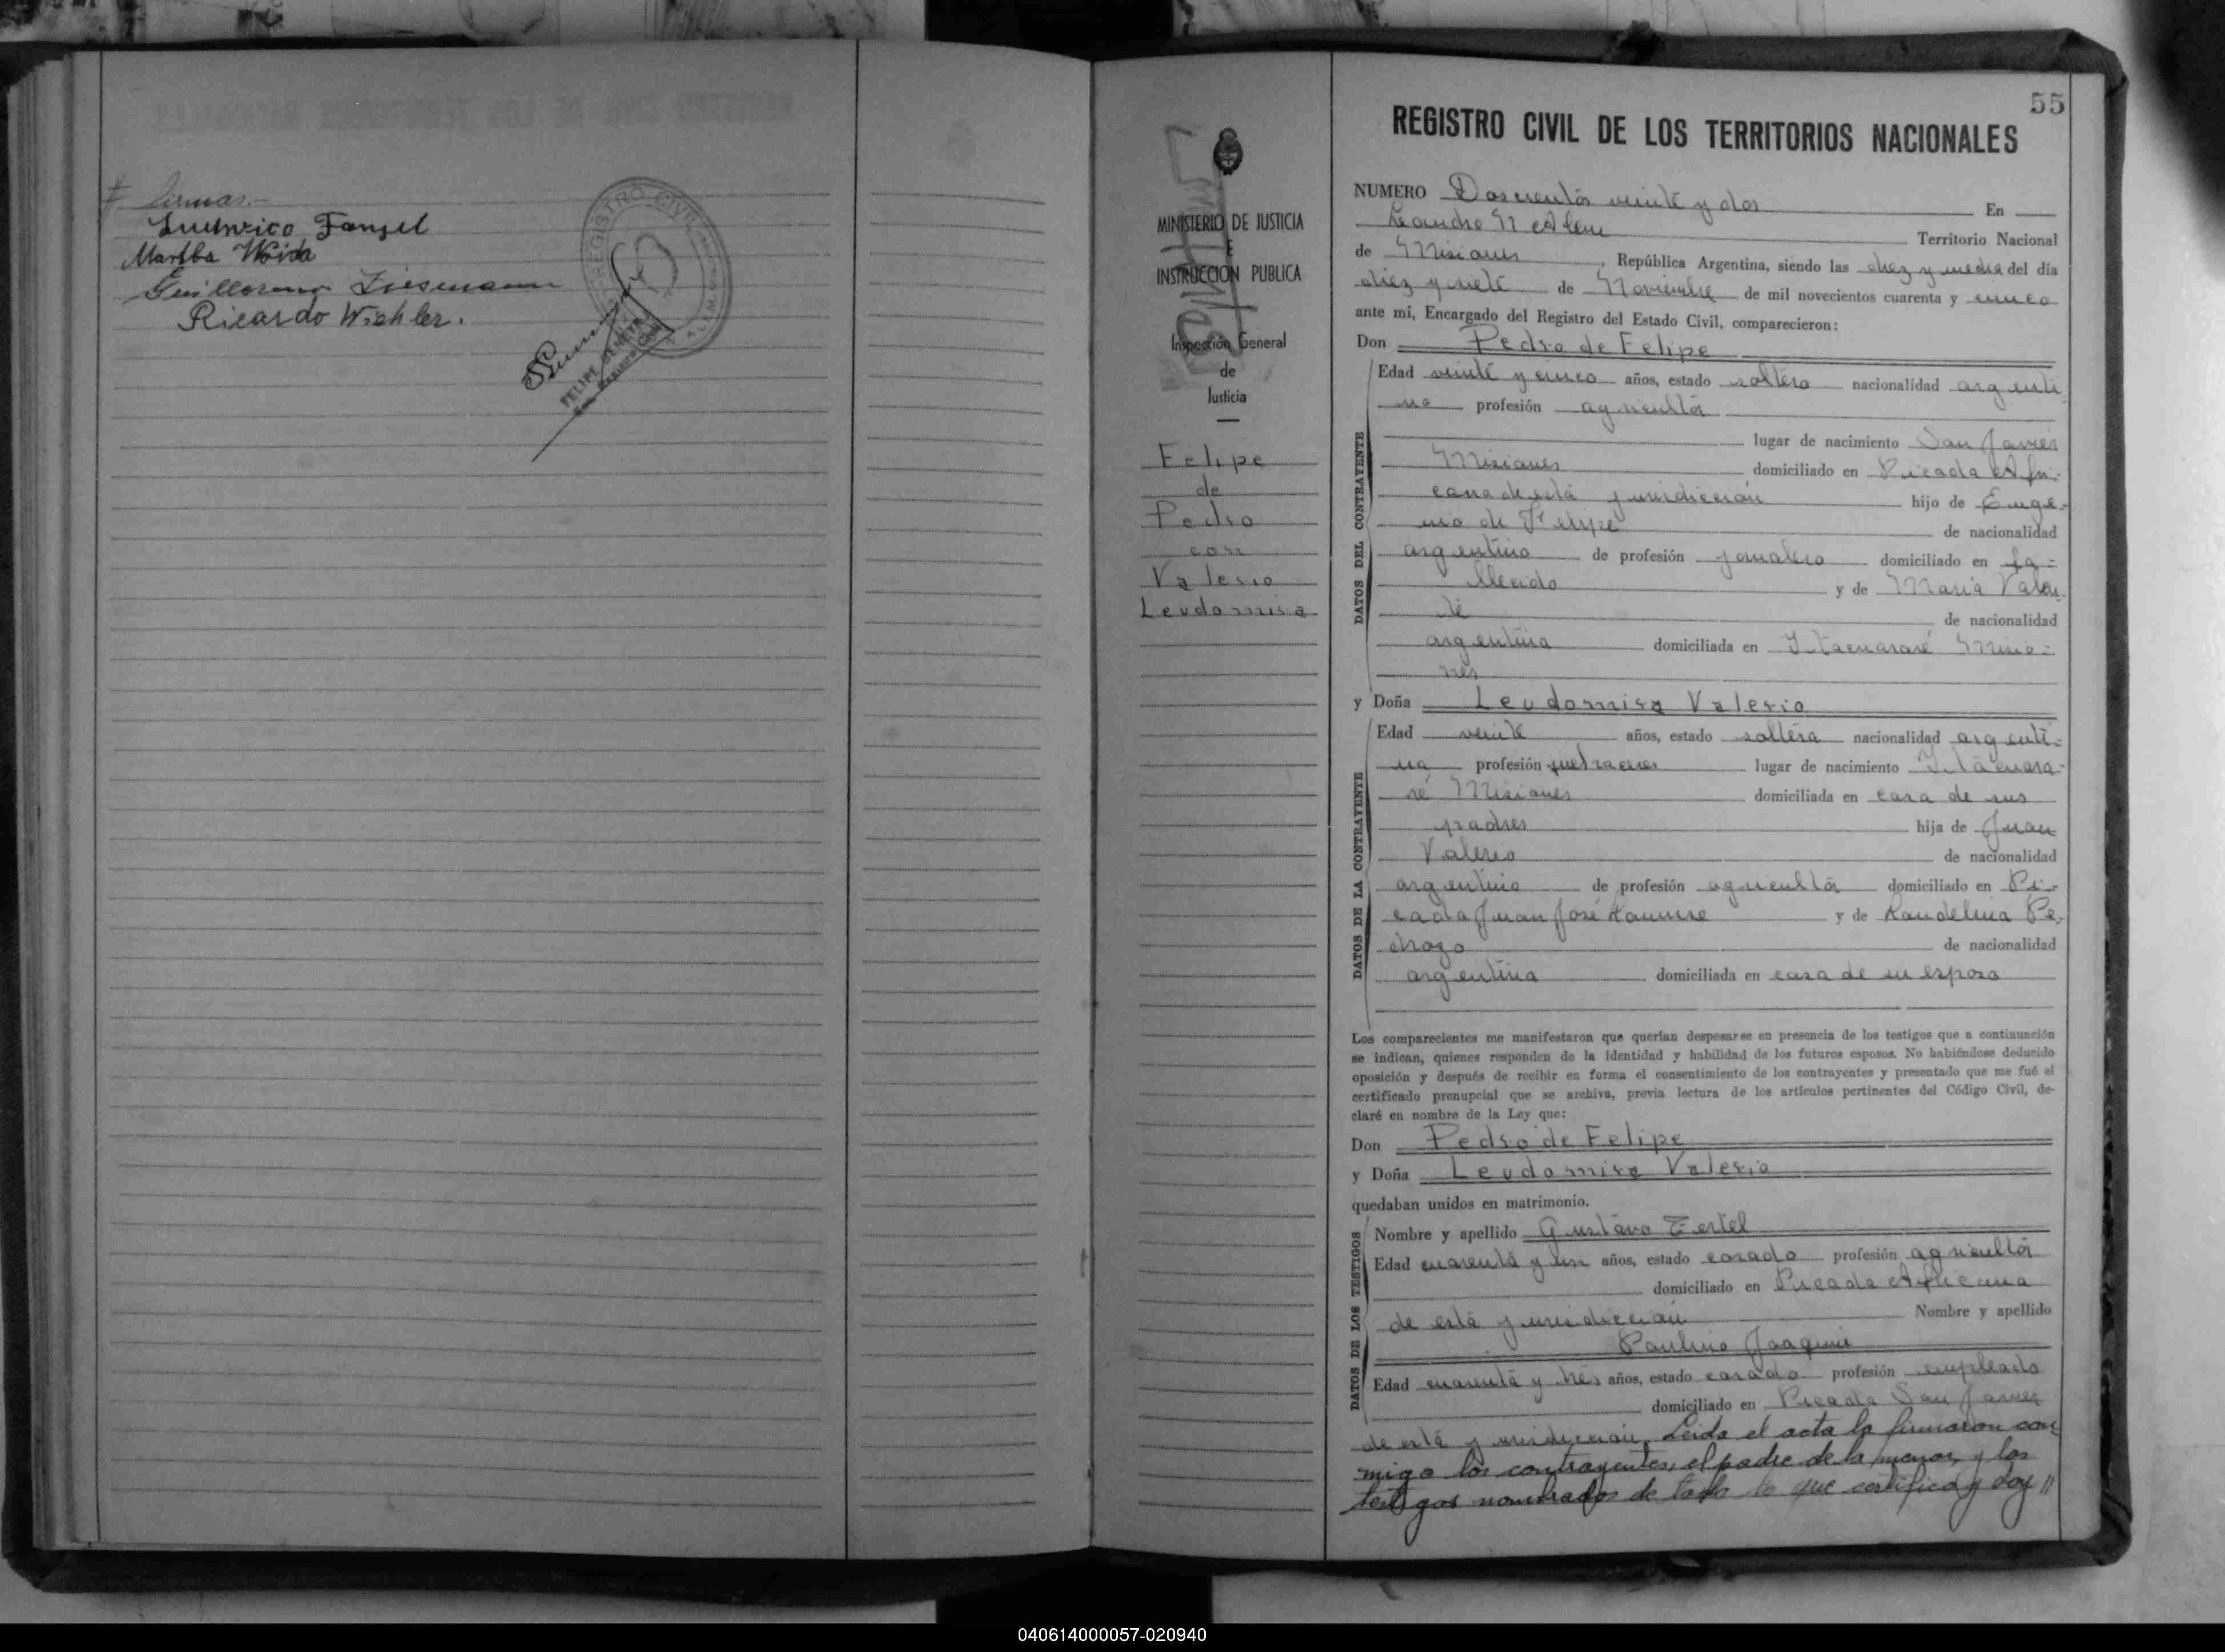 # firmas.-
Ludovico Fanzel
Martha Woida
Guillermo Ziesmann
Ricardo Wichler.
REGISTRO CIVIL
FELIPE BENITEZ
55
REGISTRO CIVIL DE LOS TERRITORIOS NACIONALES
MINISTERIO DE JUSTICIA
E
INSTRUCCION PUBLICA
Inspección General
de
Justicia
Felipe
de
Pedro
con
Valerio
Leudomisa
NUMERO Doscientos veinte y dos En
Leandro N Alem Territorio Nacional
de Misiones, República Argentina, siendo las diez y media del día
diez y siete de Noviembre de mil novecientos cuarenta y cinco
ante mí, Encargado del Registro del Estado Civil, comparecieron:
Don Pedro de Felipe
DATOS DEL CONTRAYENTE
Edad veinte y cinco años, estado soltero nacionalidad argenti-
no profesión agricultor
lugar de nacimiento San Javier
Misiones domiciliado en Picada Afri-
cana de esta jurisdicción hijo de Euge-
nio de Felipe de nacionalidad
argentino de profesión jornalero domiciliado en fa-
llecido y de María
de nacionalidad
argentina domiciliada en Itacuararé Misio-
nes
y Doña Leudomisa Valerio
DATOS DE LA CONTRAYENTE
Edad veinte años, estado soltera nacionalidad argenti-
na profesión quehaceres lugar de nacimiento Itacuara-
ré Misiones domiciliada en casa de sus
padres hija de Juan
Valerio de nacionalidad
argentino de profesión agricultor domiciliado en Pi-
cada Juan José y de Landelina Pe-
drozo de nacionalidad
argentina domiciliada en casa de su esposo
Los comparecientes me manifestaron que querían desposarse en presencia de los testigos que a continuación
se indican, quienes responden de la identidad y habilidad de los futuros esposos. No habiéndose deducido
oposición y después de recibir en forma el consentimiento de los contrayentes y presentado que me fué el
certificado prenupcial que se archiva, previa lectura de los artículos pertinentes del Código Civil, de-
claré en nombre de la Ley que:
Don Pedro de Felipe
y Doña Leudomisa Valerio
quedaban unidos en matrimonio.
DATOS DE LOS TESTIGOS
Nombre y apellido Gustavo Tertel
Edad cuarenta y un años, estado casado profesión agricultor
domiciliado en Picada Africana
de esta jurisdicción Nombre y apellido
Paulino Joaquin
Edad cuarenta y tres años, estado casado profesión empleado
domiciliado en Picada San Javier
de esta jurisdicción. Leida el acta la firmaron con-
migo los contrayentes, el padre de la menor, y los
testigos nombrados de todo lo que certifico y doy //
040614000057-020940